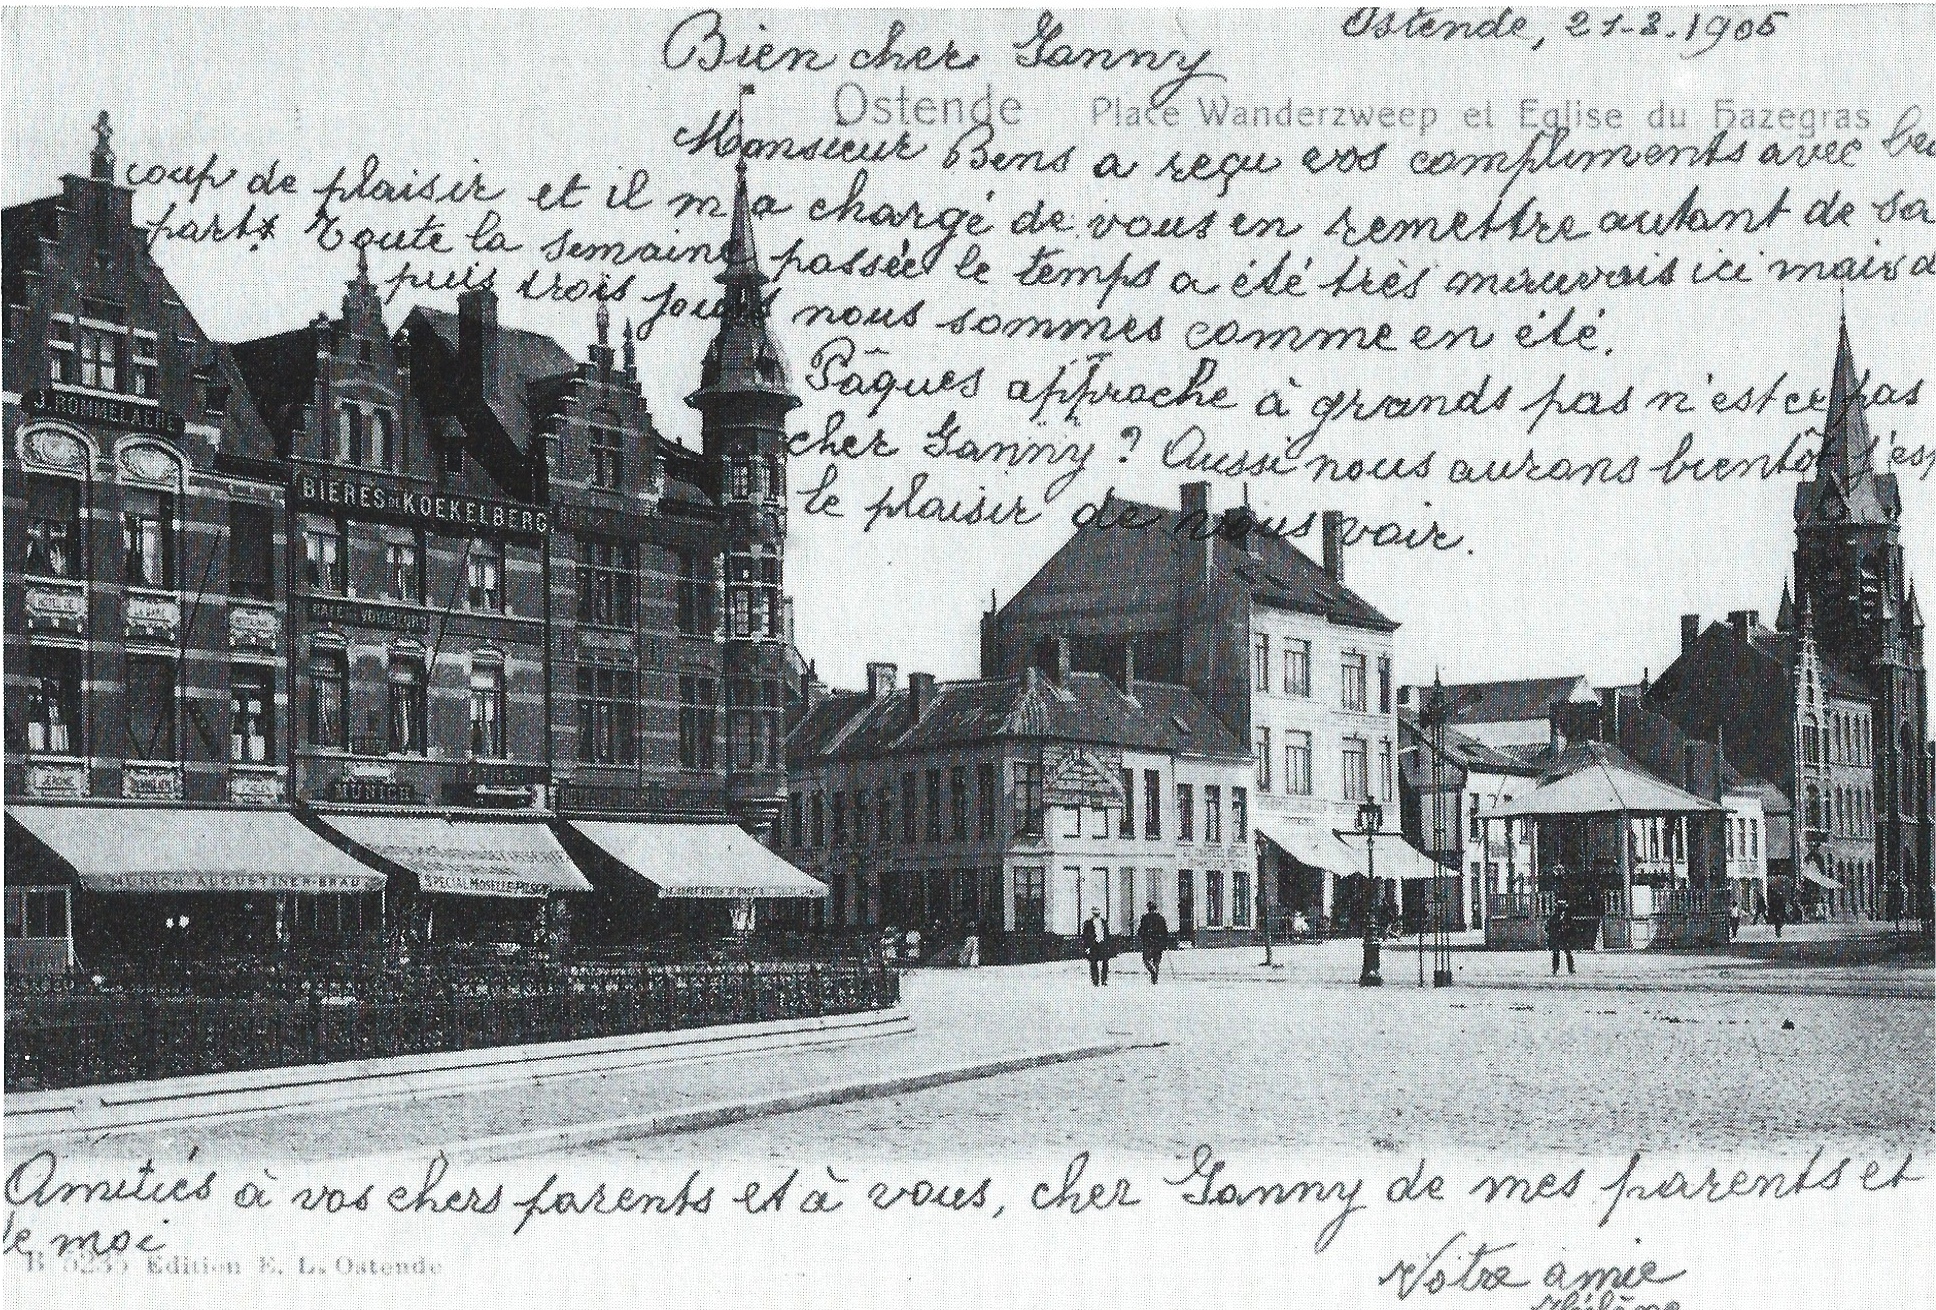 Ostende, 21-3.1905
Bien cher Ganny
Ostende Place Wanderzweep et Eglise du Hazegras
Monsieur Bens a reçu vos compliments avec beau
coup de plaisir et il m'a chargé de vous en remettre autant de sa
part. Toute la semaine passée le temps a été très mauvais ici mais d
puis trois jours nous sommes comme en été.
Pâques approche à grands pas n'est ce pas
cher Ganny? Aussi nous aurons bientôt l'esp
le plaisir de vous voir.
J. ROMMELAERE
BIERES DE KOEKELBERG
MUNICH
MUNICH AUGUSTINER-BRAU
SPECIAL MOSELLE PILSEN
Amitiés à vos chers parents et à vous, cher Ganny de mes parents et
de moi
B 5235 Edition E. L. Ostende
Votre amie
Hélène